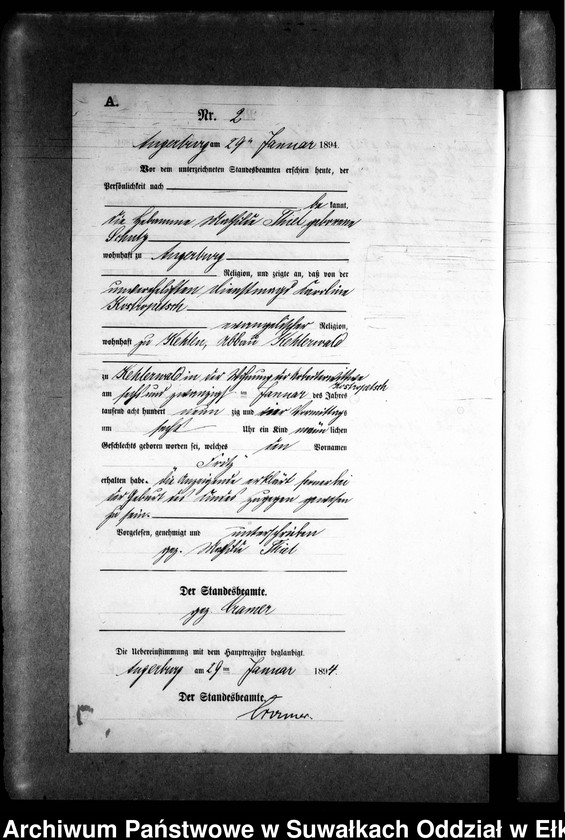 A.
Nr. 2
Angerburg am 29ten Januar 1894
Vor dem unterzeichneten Standesbeamten erschien heute, der
Persönlichkeit nach
be kannt,
die Hebamme Mathilde Thiel geborene
Schulz
wohnhaft zu Angerburg
Religion, und zeigte an, daß von der
unverehelichten Dienstmagd Caroline
Kostropetsch
evangelischer Religion,
wohnhaft zu Kehlen, Abbau Kehlerwald
zu Kehlerwald in der Wohnung der Arbeiter Wittwe
Kostropetsch
am sechs und zwanzigsten Januar des Jahres
tausend acht hundert neun zig und vier Vormittags
um sechs Uhr ein Kind männ lichen
Geschlechts geboren worden sei, welches den Vornamen
Fritz
erhalten habe. Die Anzeigende erklärt ferner bei
der Geburt des Kindes zugegen gewesen
zu sein.
Vorgelesen, genehmigt und unterschrieben
gez. Mathilde Thiel
Der Standesbeamte.
gez. Cramer
Die Uebereinstimmung mit dem Hauptregister beglaubigt.
Angerburg am 29ten Januar 1894.
Der Standesbeamte.
Cramer.
Archiwum Państwowe w Suwałkach Oddział w Ełk